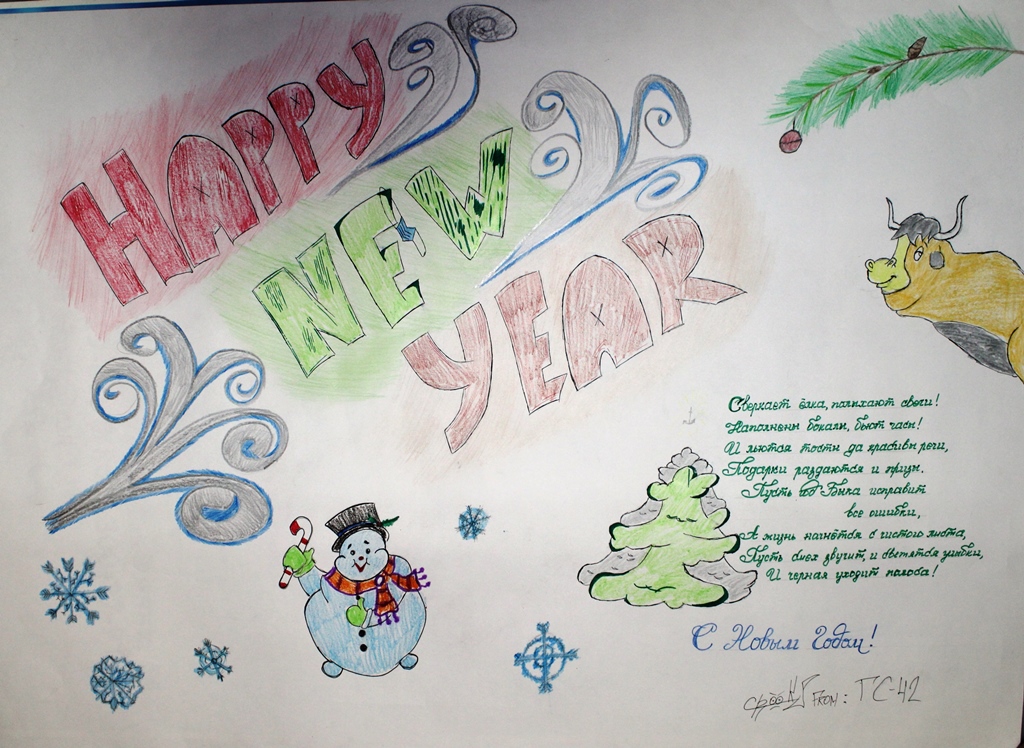 HAPPY
NEW
YEAR
Сверкает ёлка, полыхают свечи!
Наполнены бокалы, бьют часы!
И льются тосты да красивы речи,
Подарки раздаются и призы.
Пусть год Быка исправит
все ошибки,
А жизнь начнётся с чистого листа,
Пусть смех звучит, и светятся улыбки,
И черная уходит полоса!
С Новым Годом!
FROM: ГС-42